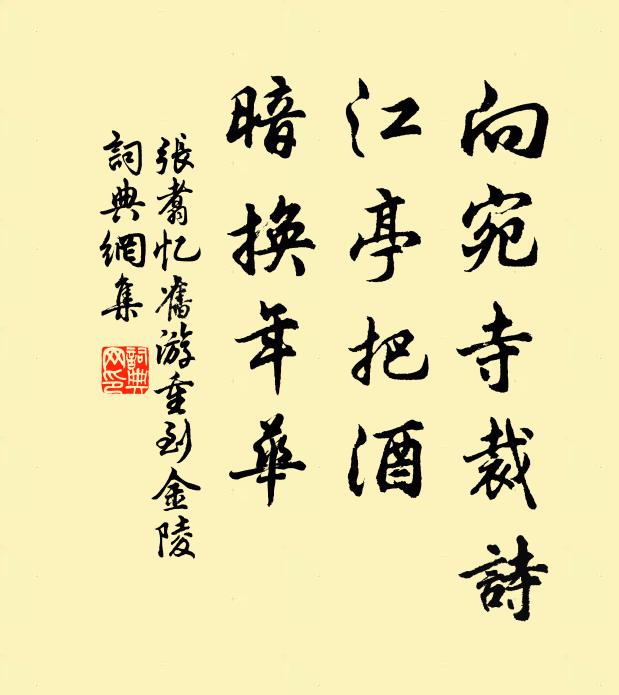 向宛寺裁詩
江亭把酒
暗換年華
張翥忆舊游重到金陵
詞典網集
詞典
网印